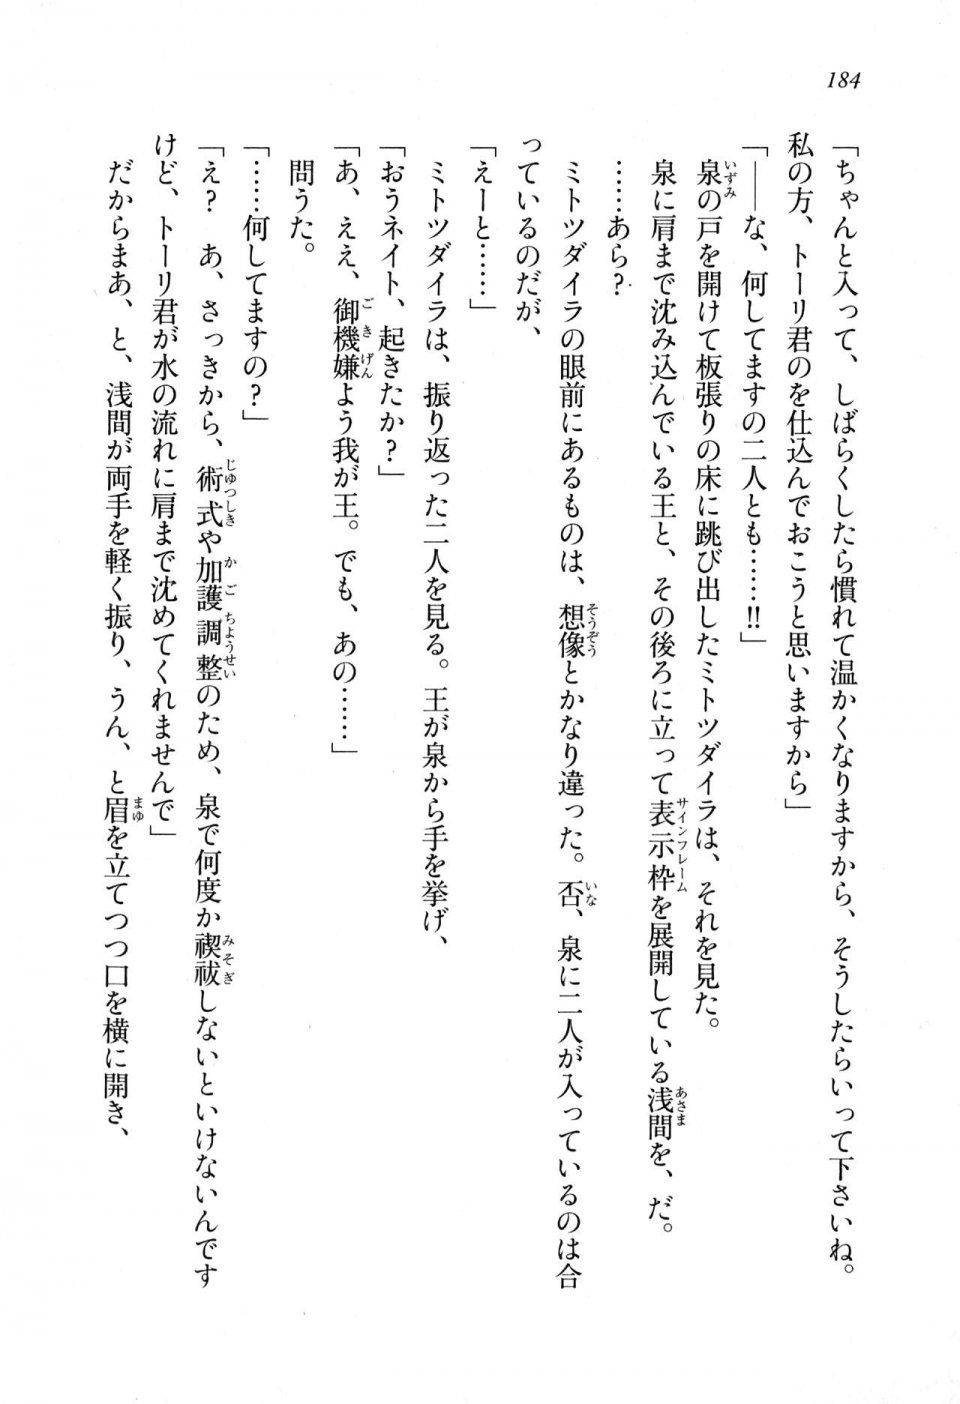 184
「ちゃんと入って、しばらくしたら慣れて温かくなりますから、そうしたらいって下さいね。
私の方、トーリ君のを仕込んでおこうと思いますから」
「――な、何してますの二人とも……!!」
泉の戸を開けて板張りの床に跳び出したミトツダイラは、それを見た。
泉に肩まで沈み込んでいる王と、その後ろに立って表示枠を展開している浅間を、だ。
……あら?
ミトツダイラの眼前にあるものは、想像とかなり違った。否、泉に二人が入っているのは合
っているのだが、
「えーと……」
ミトツダイラは、振り返った二人を見る。王が泉から手を挙げ、
「おうネイト、起きたか?」
「あ、ええ、御機嫌よう我が王。でも、あの……」
問うた。
「……何してますの?」
「え? あ、さっきから、術式や加護調整のため、泉で何度か禊祓しないといけないんです
けど、トーリ君が水の流れに肩まで沈めてくれませんで」
だからまあ、と、浅間が両手を軽く振り、うん、と眉を立てつつ口を横に開き、